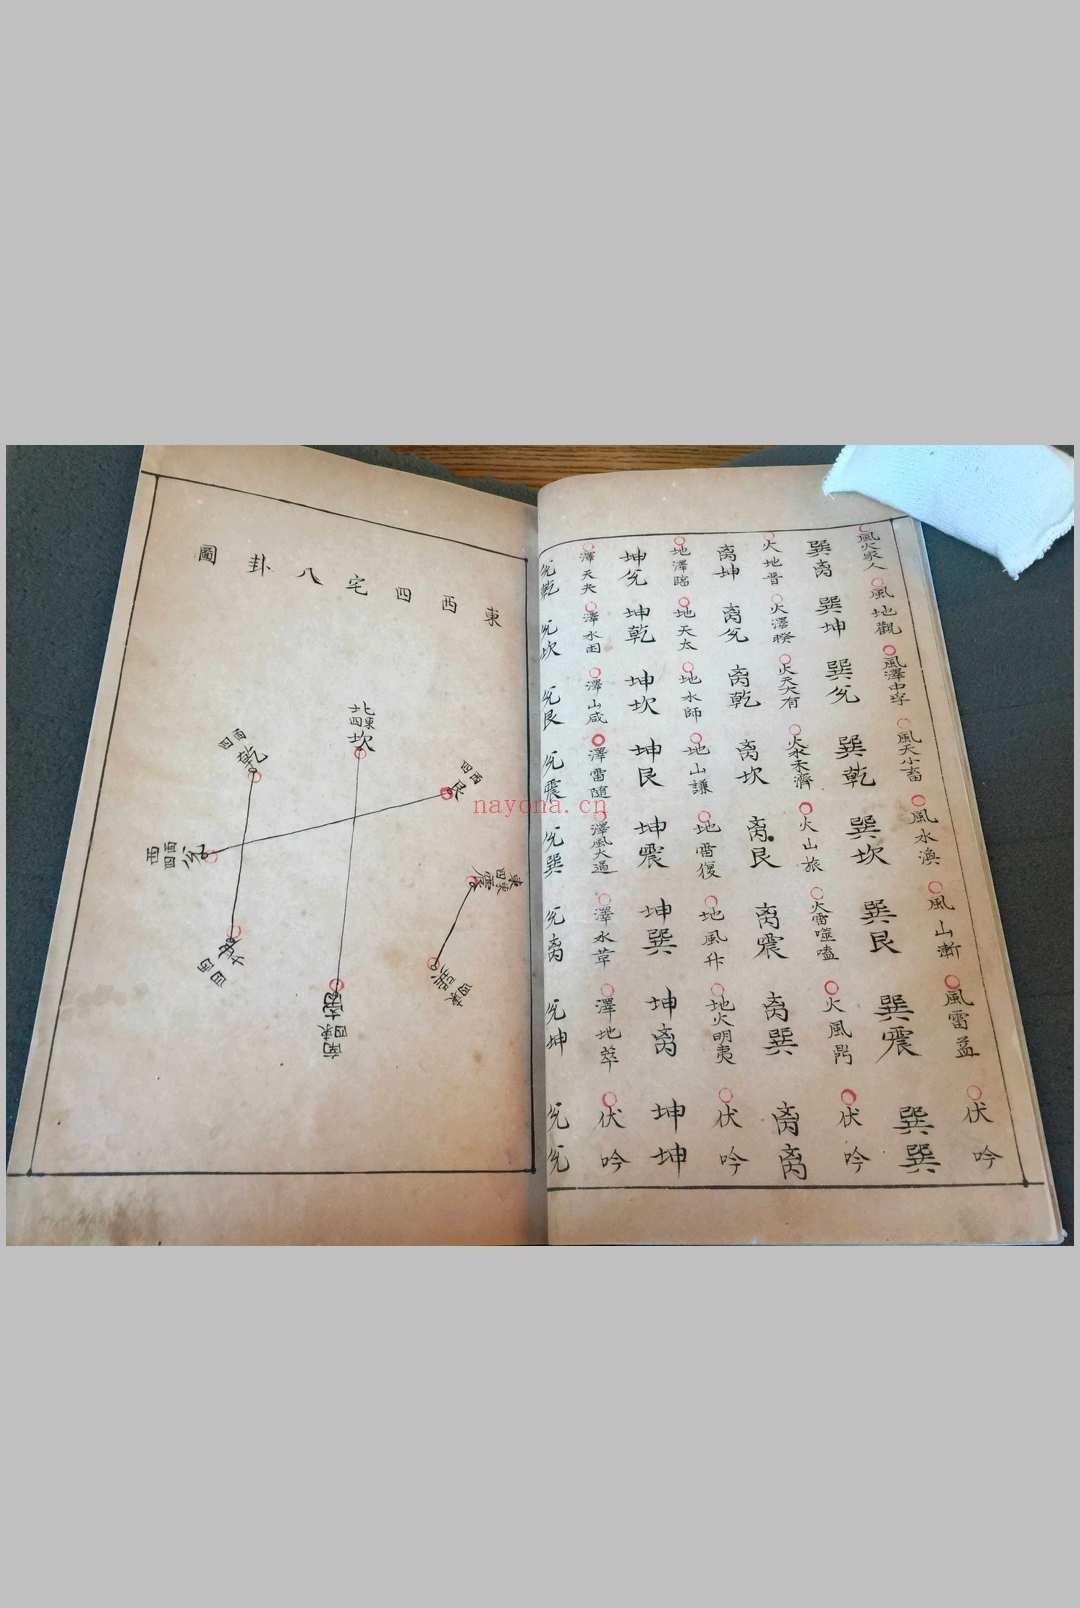 風火家人 風地觀 風澤中孚 風天小畜 風水渙 風山漸 風雷益 伏吟
巽离 巽坤 巽兊 巽乾 巽坎 巽艮 巽震 巽巽
火地晋 火澤睽 火天大有 火水未濟 火山旅 火雷噬嗑 火風鼎 伏吟
离坤 离兊 离乾 离坎 离艮 离震 离巽 离离
地澤臨 地天太 地水師 地山謙 地雷復 地風升 地火明夷 伏吟
坤兊 坤乾 坤坎 坤艮 坤震 坤巽 坤离 坤坤
澤天夬 澤水困 澤山咸 澤雷隨 澤風大過 澤水革 澤地萃 伏吟
兊乾 兊坎 兊艮 兊震 兊巽 兊离 兊坤 兊兊
東西四宅八卦圖
北
東四
坎
西四
乾
西四
艮
西
西四
兊
東
東四
震
西四
坤
東四
巽
离
東四
南
nayona.cn